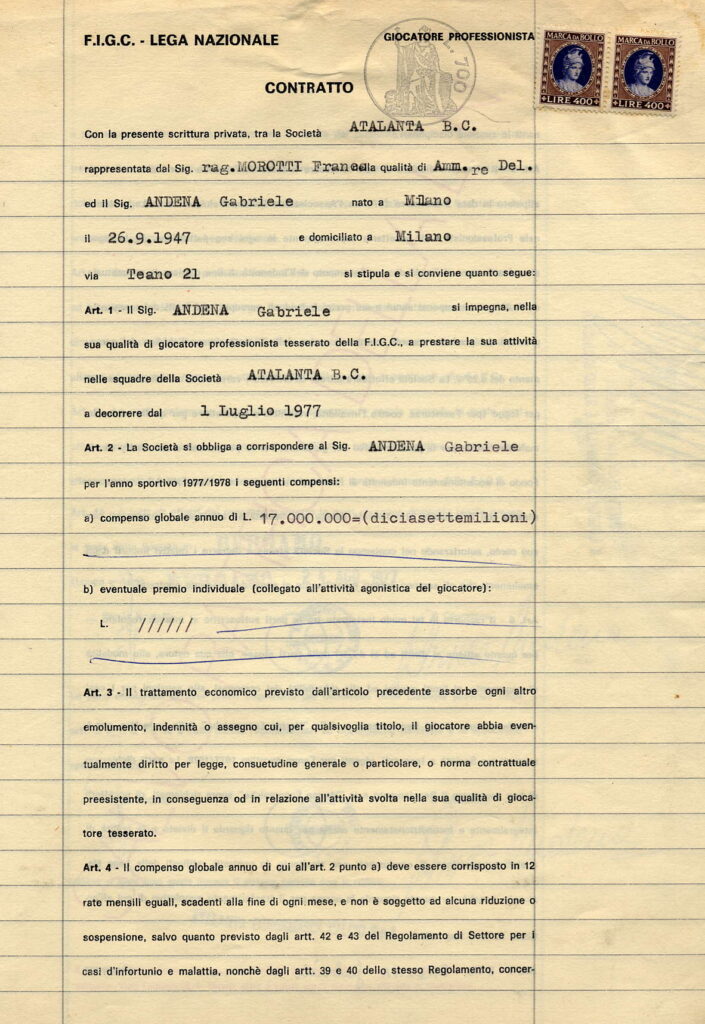 F.I.G.C. - LEGA NAZIONALE
GIOCATORE PROFESSIONISTA
L. 700
MARCA DA BOLLO
LIRE 400
MARCA DA BOLLO
LIRE 400
CONTRATTO
Con la presente scrittura privata, tra la Società ATALANTA B.C.
rappresentata dal Sig. rag.MOROTTI Franco nella qualità di Amm.re Del.
ed il Sig. ANDENA Gabriele nato a Milano
il 26.9.1947 e domiciliato a Milano
via Teano 21 si stipula e si conviene quanto segue:
Art. 1 - Il Sig. ANDENA Gabriele si impegna, nella
sua qualità di giocatore professionista tesserato della F.I.G.C., a prestare la sua attività
nelle squadre della Società ATALANTA B.C.
a decorrere dal 1 Luglio 1977
Art. 2 - La Società si obbliga a corrispondere al Sig. ANDENA Gabriele
per l'anno sportivo 1977/1978 i seguenti compensi:
a) compenso globale annuo di L. 17.000.000=(diciasettemilioni)
b) eventuale premio individuale (collegato all'attività agonistica del giocatore):
L. //////
Art. 3 - Il trattamento economico previsto dall'articolo precedente assorbe ogni altro
emolumento, indennità o assegno cui, per qualsivoglia titolo, il giocatore abbia even-
tualmente diritto per legge, consuetudine generale o particolare, o norma contrattuale
preesistente, in conseguenza od in relazione all'attività svolta nella sua qualità di gioca-
tore tesserato.
Art. 4 - Il compenso globale annuo di cui all'art. 2 punto a) deve essere corrisposto in 12
rate mensili eguali, scadenti alla fine di ogni mese, e non è soggetto ad alcuna riduzione o
sospensione, salvo quanto previsto dagli artt. 42 e 43 del Regolamento di Settore per i
casi d'infortunio e malattia, nonchè dagli artt. 39 e 40 dello stesso Regolamento, concer-